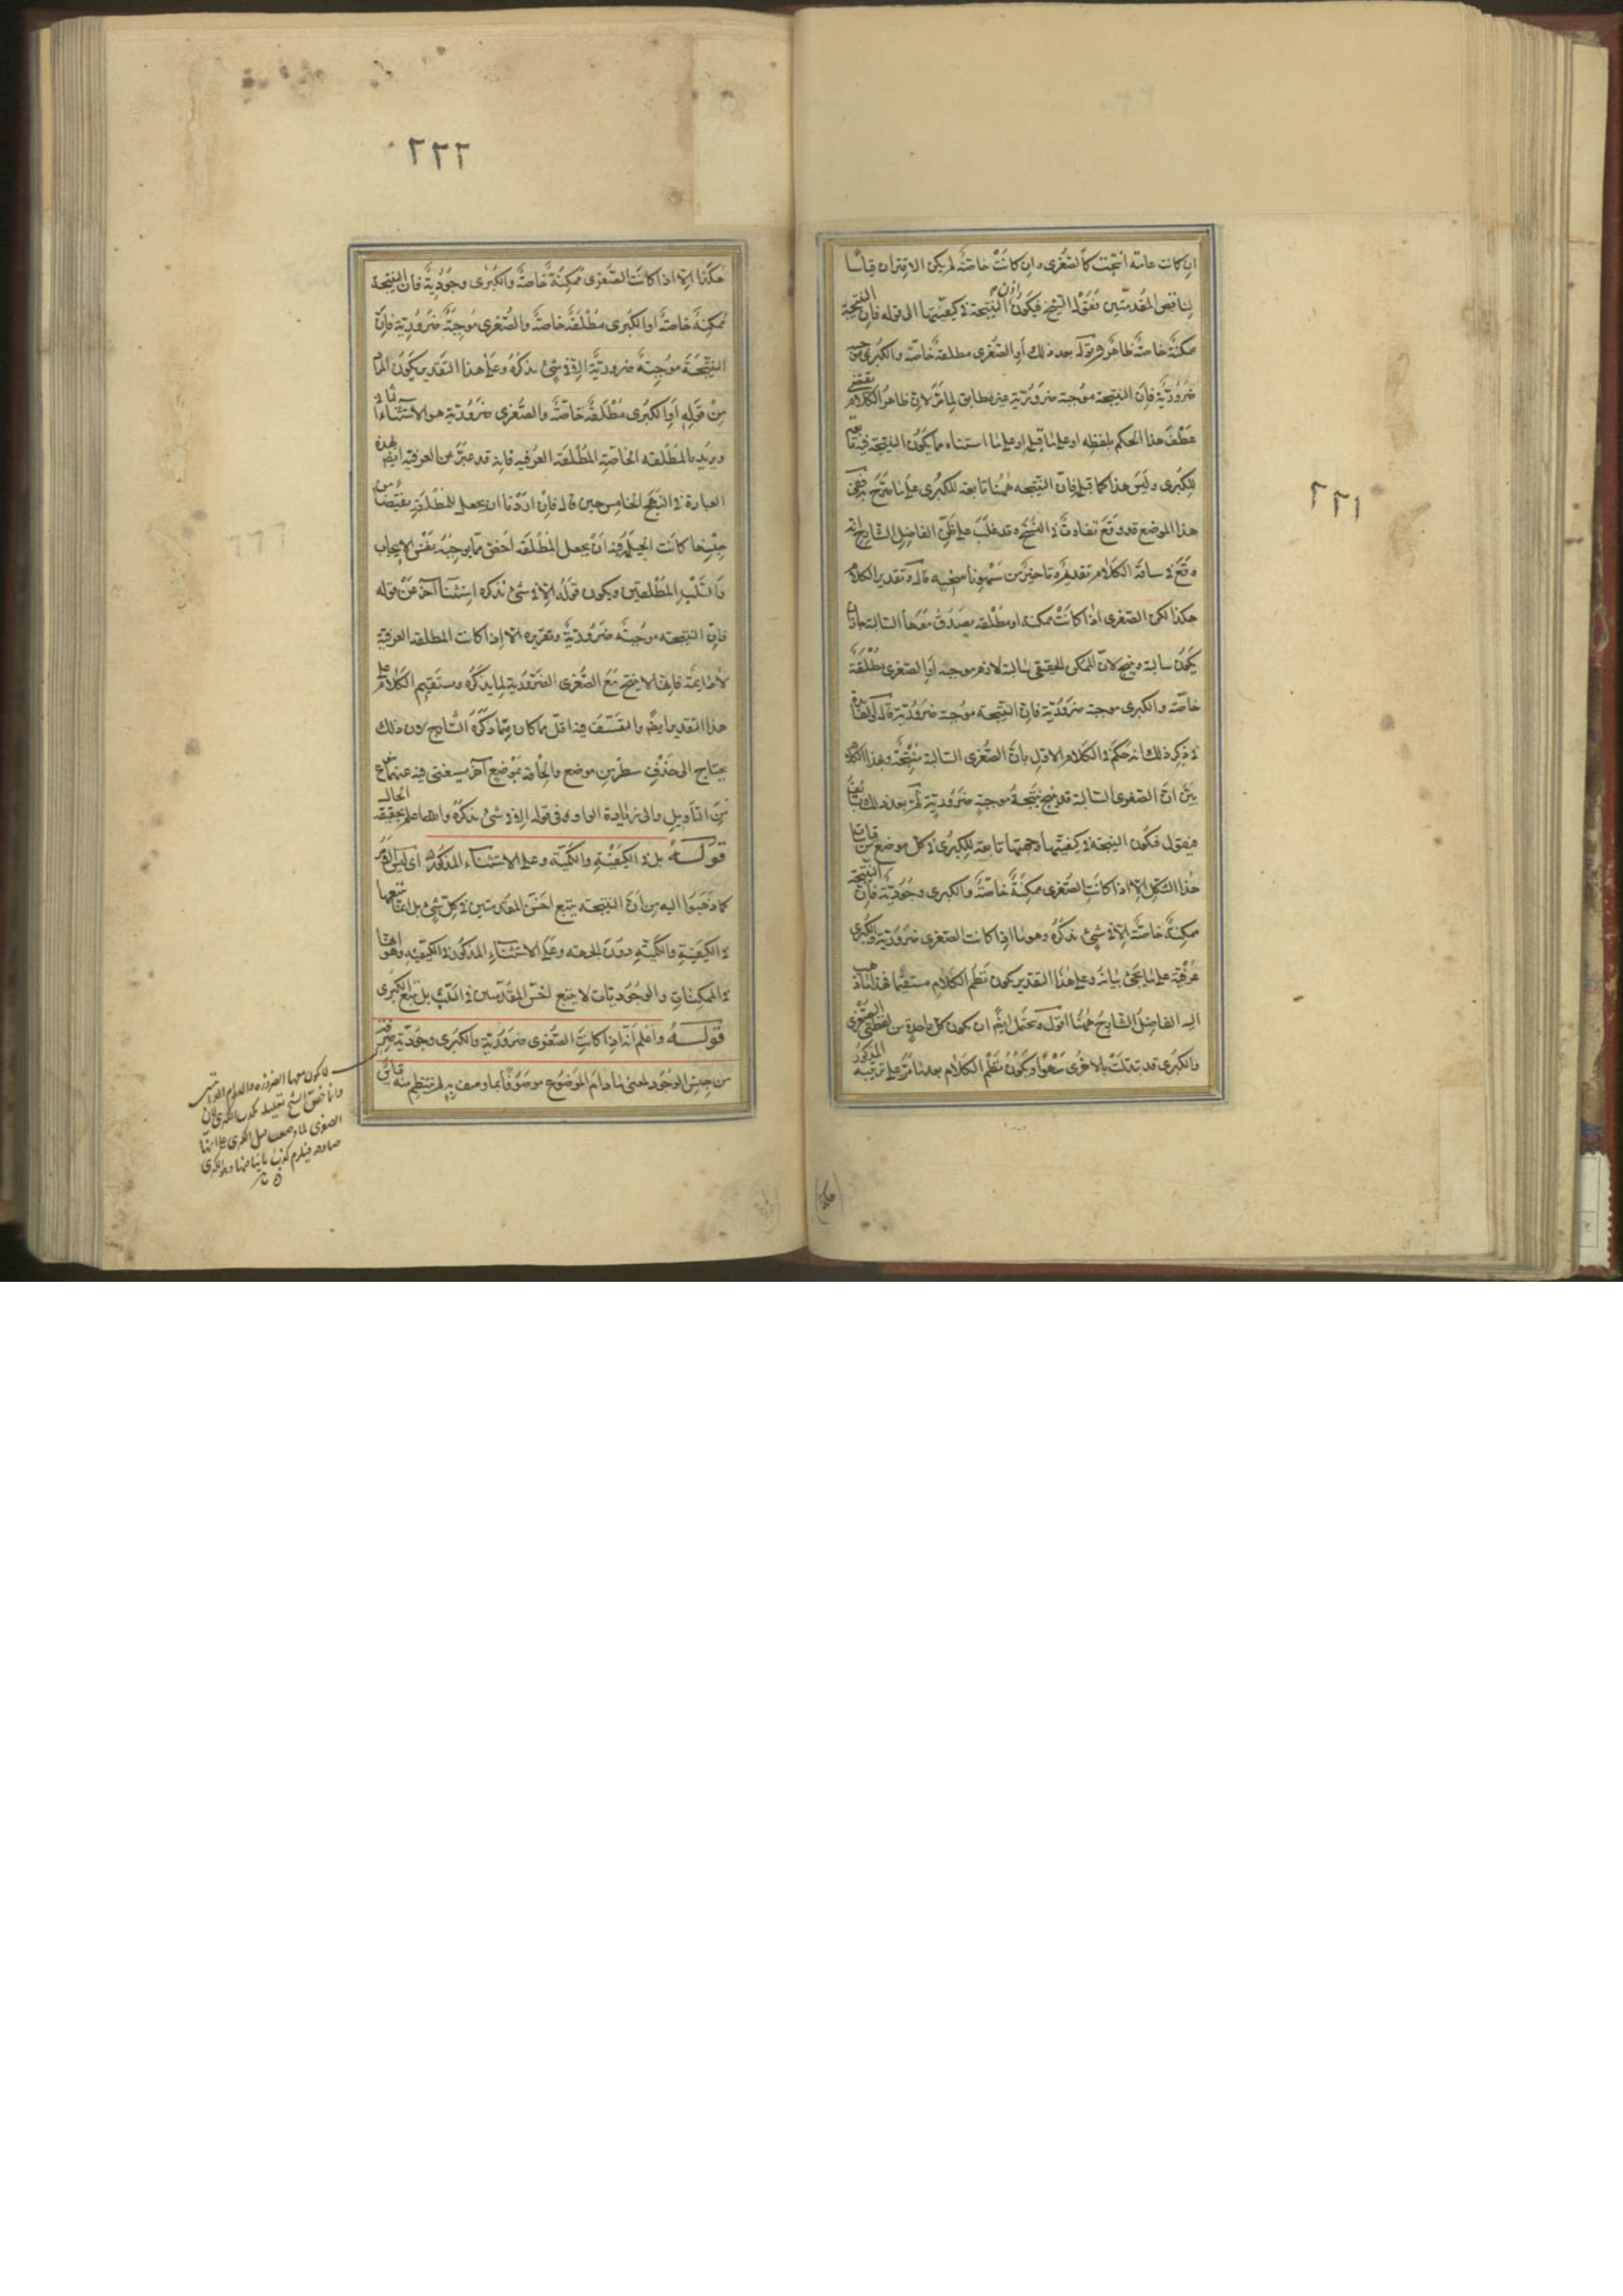 ٢٢١
ان كانت عامة انتجت كالصغرى وان كانت خاصة لم يكن الاقتران قياسا
لتناقض المقدمتين فقول الشيخ فيكون اذن النتيجة فى كيفيتهما الى قوله فان النتيجة
ممكنة خاصة ظاهر وقوله بعد ذلك او الصغرى مطلقة خاصة والكبرى موجبة
ضرورية فان النتيجة موجبة ضرورية غير مطابق لما مر لان ظاهر الكلام يقتضى
عطف هذا الحكم بلفظه او على ما قبله او على ما استثناه مما يكون النتيجة فيه تابعة
للكبرى وليس هذا كما قبله فان النتيجة ههنا تابعة للكبرى على ما صرح به ففى
هذا الموضع قد وقع تفاوت فى النسخ وقد غلب على ظن الفاضل الشارح انه
وقع فى سياقة الكلام تقديم وتاخير من سهو ناسخيه قال وتقدير الكلام
هكذا لكن الصغرى اذا كانت ممكنة او مطلقة يصدق معها السالبة جاز ان
يكون سالبة وينتج لان الممكن الحقيقى سالبه لازم موجبه او الصغرى مطلقة
خاصة والكبرى موجبة ضرورية فان النتيجة موجبة ضرورية قال والفائدة
فى ذكر ذلك انه حكم فى الكلام الاول بان الصغرى السالبة منتجة وبهذا الكلام
بين ان الصغرى السالبة قد ينتج نتيجة موجبة ضرورية ثم بعد ذلك
فيقول فتكون النتيجة فى كيفيتها وجهتها تابعة للكبرى فى كل موضع من قياسات
هذا الشكل الا اذا كانت الصغرى ممكنة خاصة والكبرى وجودية فان النتيجة
ممكنة خاصة الا فى شئ نذكره وهو ما اذا كانت الصغرى ضرورية والكبرى
عرفية على ما يجئ بيانه وعلى هذا التقدير يكون نظم الكلام مستقيما فهذا ما ذهب
اليه الفاضل الشارح ههنا اقول ويحتمل ايضا ان يكون كل واحدة من لفظتى الصغرى
والكبرى قد تبدلت بالاخرى سهوا ويكون نظم الكلام بعد ما مر على ترتيبه المذكور
٢٢٢
هكذا الا اذا كانت الصغرى ممكنة خاصة والكبرى وجودية فان النتيجة
ممكنة خاصة او الكبرى مطلقة خاصة والصغرى موجبة ضرورية فان
النتيجة موجبة ضرورية الا فى شئ نذكره وعلى هذا التقدير يكون المراد
من قوله او الكبرى مطلقة خاصة والصغرى ضرورية هو الاستثناء الثانى
ويريد بالمطلقة الخاصة المطلقة العرفية فانه قد عبر عن العرفية ايضا بهذه
العبارة فى النهج الخامس حين قال فان اردنا ان نجعل للمطلقة نقيضا من
جنسها كانت الحيلة فيه ان نجعل المطلقة اخص مما يوجبه نفس الايجاب
والسلب المطلقين ويكون قوله الا فى شئ نذكره استثناء آخر عن قوله
فان النتيجة موجبة ضرورية وتقريره الا اذا كانت المطلقة العرفية
لادائمة فانها لا ينتج مع الصغرى الضرورية لما يذكره ويستقيم الكلام على
هذا التقدير ايضا والتعسف فيه اقل مما كان فيما ذكره الشارح لان ذلك
يحتاج الى حذف سطر من موضع والحاقه بموضع آخر يستغنى فيه عنهما
من التاويل والى زيادة الواو فى قوله الا فى شئ نذكره والله اعلم بحقيقة الحال
قوله بل فى الكيفية والكمية وعلى الاستثناء المذكور اى ليس الامر
كما ذهبوا اليه من ان النتيجة يتبع اخس المقدمتين فى كل شئ بل انما يتبعها
فى الكيفية والكمية دون الجهة وعلى الاستثناء المذكور فى الكيفية وهو انها
فى الممكنات والوجوديات لا يتبع اخس المقدمتين فى السلب بل يتبع الكبرى
قوله واعلم انه اذا كانت الصغرى ضرورية والكبرى وجودية صرفة
من جنس الوجود لمعنى ما دام الموضوع موصوفا بما وصف به لم ينتظم منه قياس
لا يكون معها الضرورة والدوام
الصغرى لما وضعت قبل الكبرى على انها